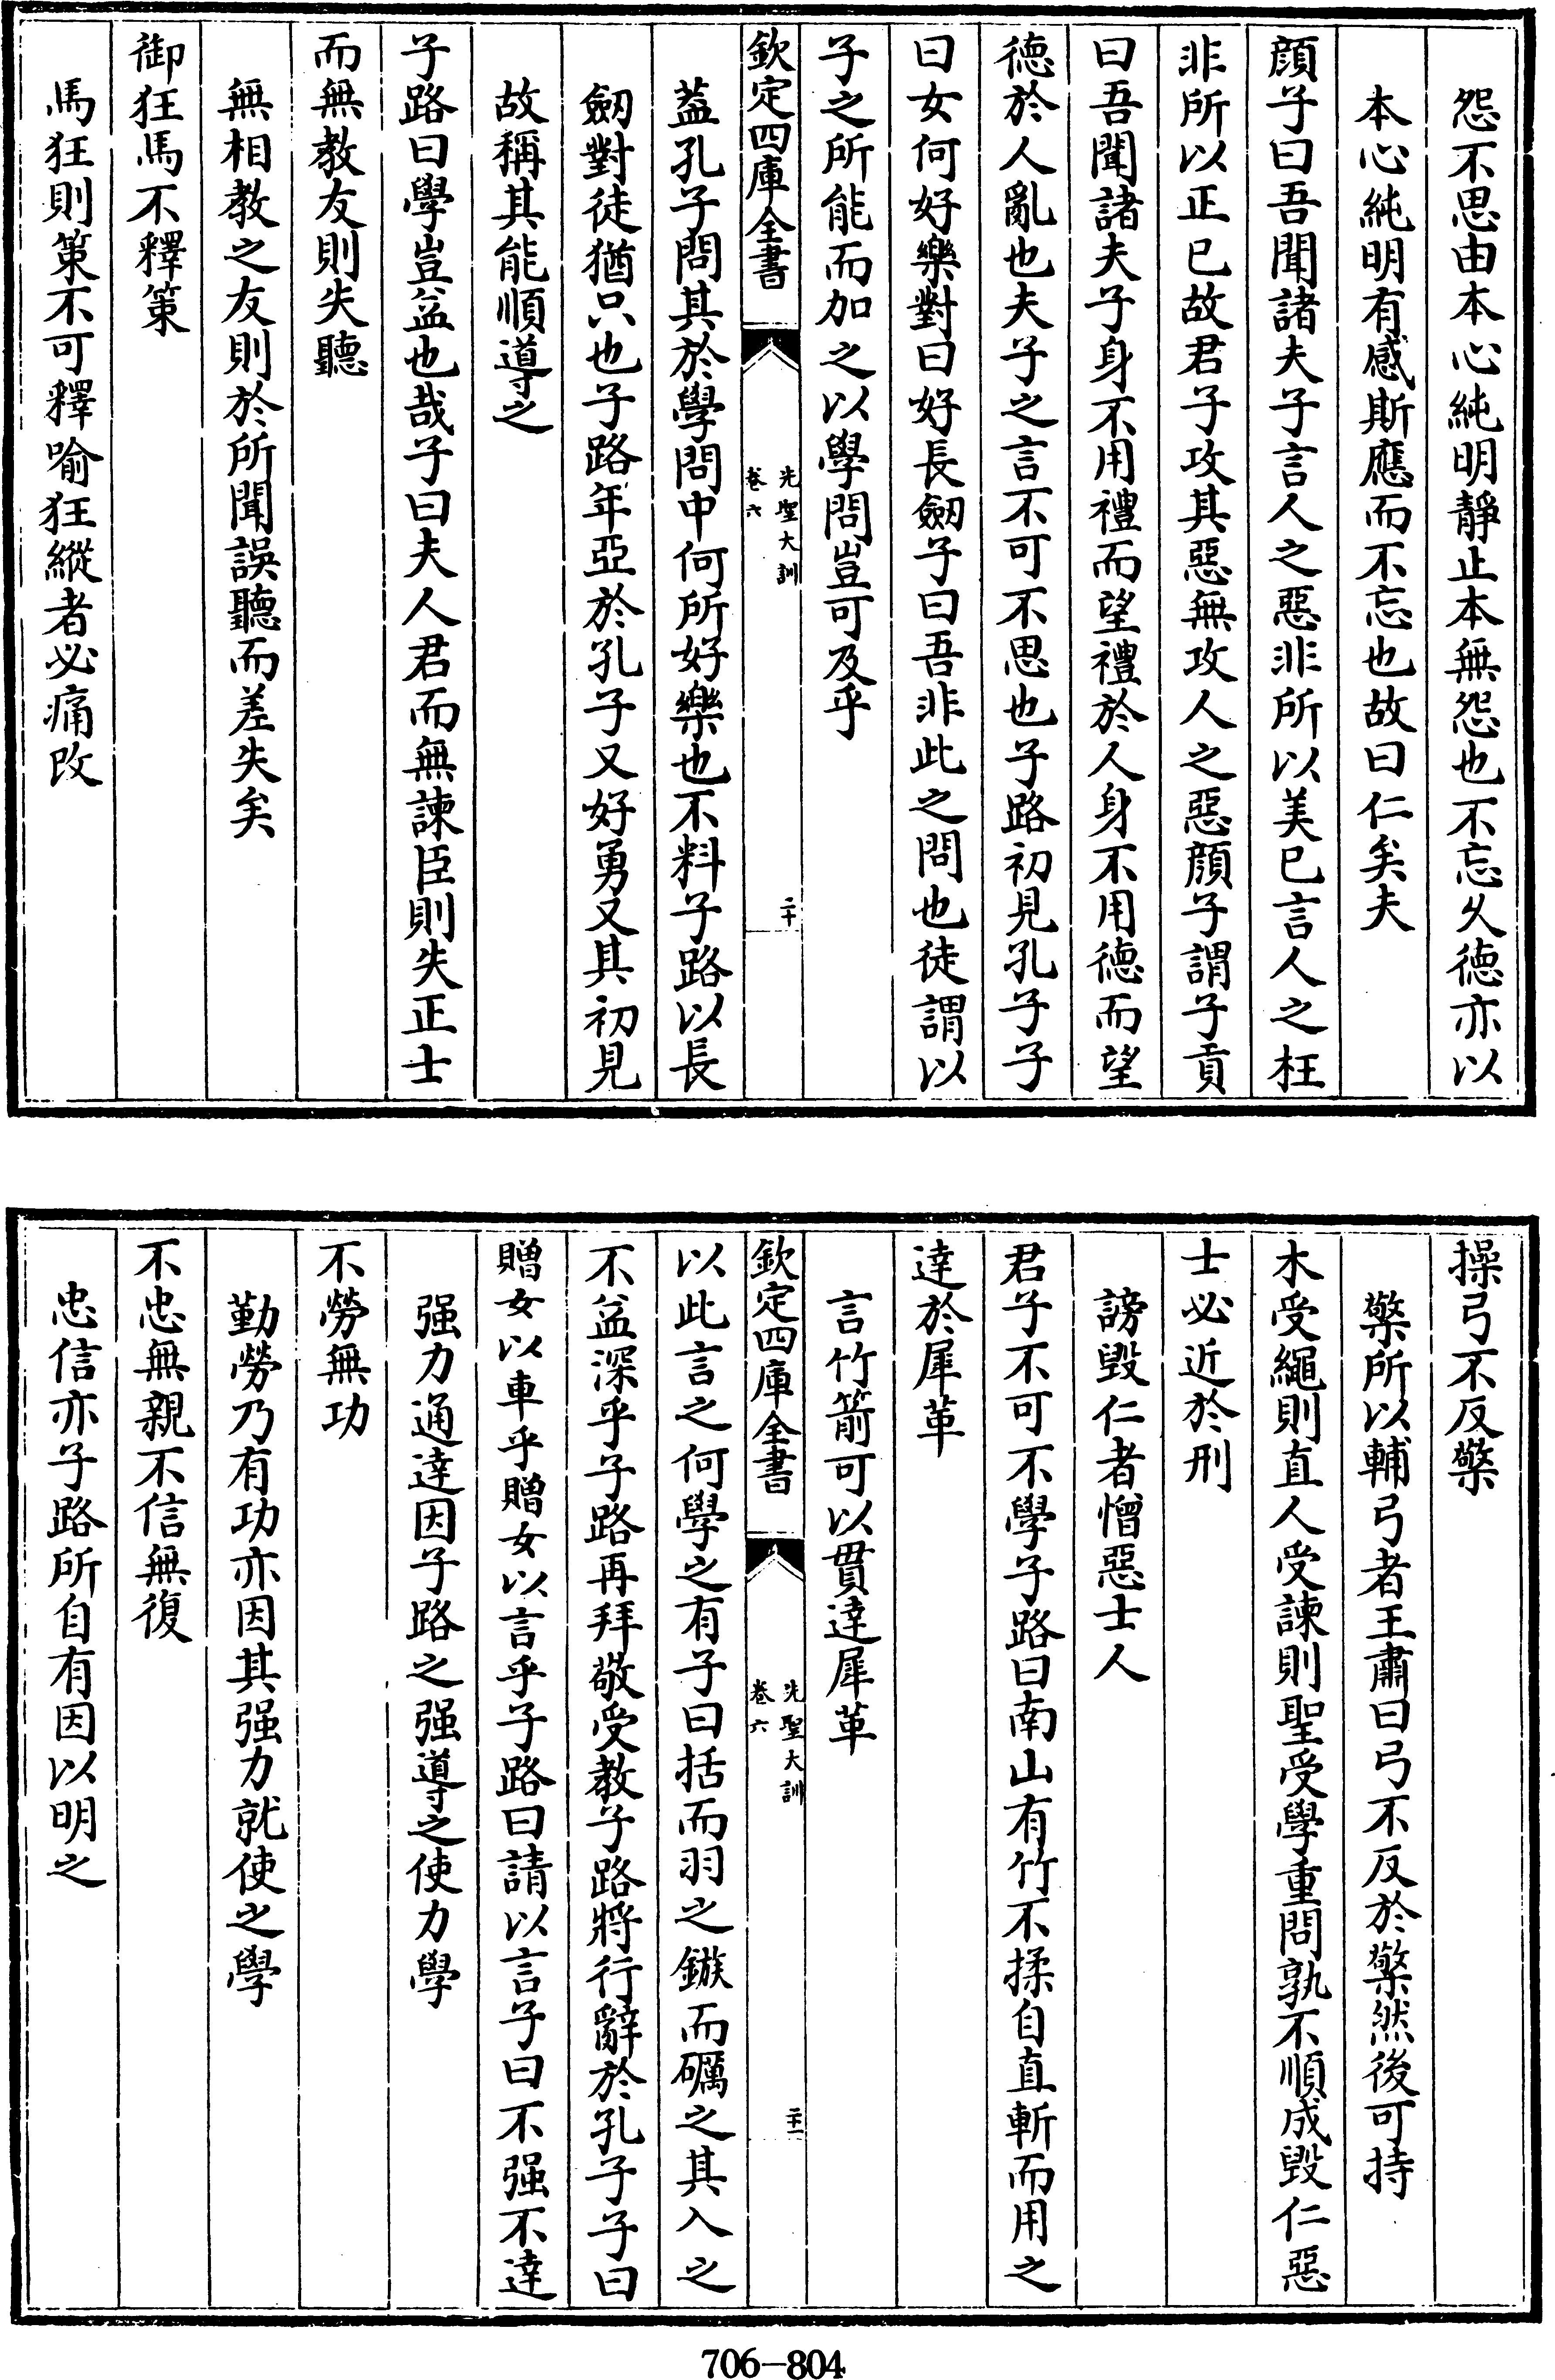 怨不思由本心純明靜止本無怨也不忘久德亦以
本心純明有感斯應而不忘也故曰仁矣夫
顔子曰吾聞諸夫子言人之惡非所以美已言人之枉
非所以正已故君子攻其惡無攻人之惡顔子謂子貢
曰吾聞諸夫子身不用禮而望禮於人身不用德而望
德於人亂也夫子之言不可不思也子路初見孔子子
曰女何好樂對曰好長劒子曰吾非此之問也徒謂以
子之所能而加之以學問豈可及乎
欽定四庫全書
先聖大訓
卷六
二十
葢孔子問其於學問中何所好樂也不料子路以長
劒對徒猶只也子路年亞於孔子又好勇又其初見
故稱其能順導之
子路曰學豈益也哉子曰夫人君而無諫臣則失正士
而無教友則失聽
無相教之友則於所聞誤聽而差失矣
御狂馬不釋策
馬狂則策不可釋喻狂縱者必痛改
操弓不反檠
檠所以輔弓者王肅曰弓不反於檠然後可持
木受繩則直人受諫則聖受學重問孰不順成毀仁惡
士必近於刑
謗毀仁者憎惡士人
君子不可不學子路曰南山有竹不揉自直斬而用之
達於犀革
言竹箭可以貫達犀革
欽定四庫全書
先聖大訓
卷六
二十一
以此言之何學之有子曰括而羽之鏃而礪之其入之
不益深乎子路再拜敬受教子路將行辭於孔子子曰
贈女以車乎贈女以言乎子路曰請以言子曰不强不達
强力通達因子路之强導之使力學
不勞無功
勤勞乃有功亦因其强力就使之學
不忠無親不信無復
忠信亦子路所自有因以明之
706-804